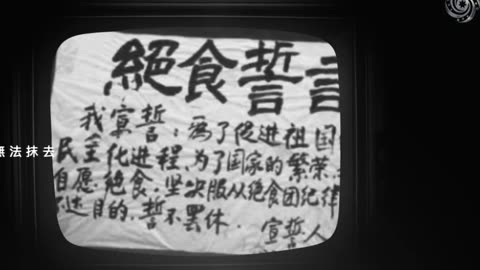 絕食誓言
我宣誓：為了促进祖国
民主化进程，为了国家的繁荣，
自愿绝食，坚决服从绝食团纪律
不达目的，誓不罢休。
宣誓人
無法抹去